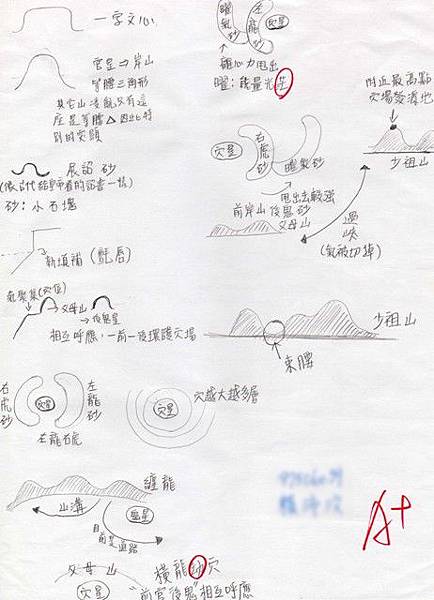 一字文心
官星⇒岸山
等腰三角形
其它山凌亂只有這
座是等腰△因此特
別的突顯
展誥砂
(像古代結婚看的詔書一樣)
砂：小石塊
斬頭補(氈唇)
氣聚集(穴位)
→父母山
→後鬼星
相互呼應，一前一後環護穴場
右虎砂
穴星
左龍砂
左龍右虎
穴星
穴越大越多層
纏龍
山溝
穴星
目前是道路
父母山
穴星
橫龍結穴
"前官後鬼"相互呼應
曜氣砂
左龍砂
穴星
離心力甩出
曜：能量光芒
穴星
右虎砂
曜氣砂
甩出去較強
前岸山後鬼砂
父母山
附近最高點
穴場發源地
少祖山
過峽
(氣被切掉)
少祖山
束腰
A+